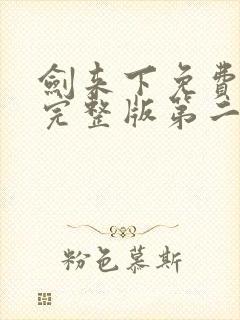 劍来下免費
完整版第二
粉色慕斯